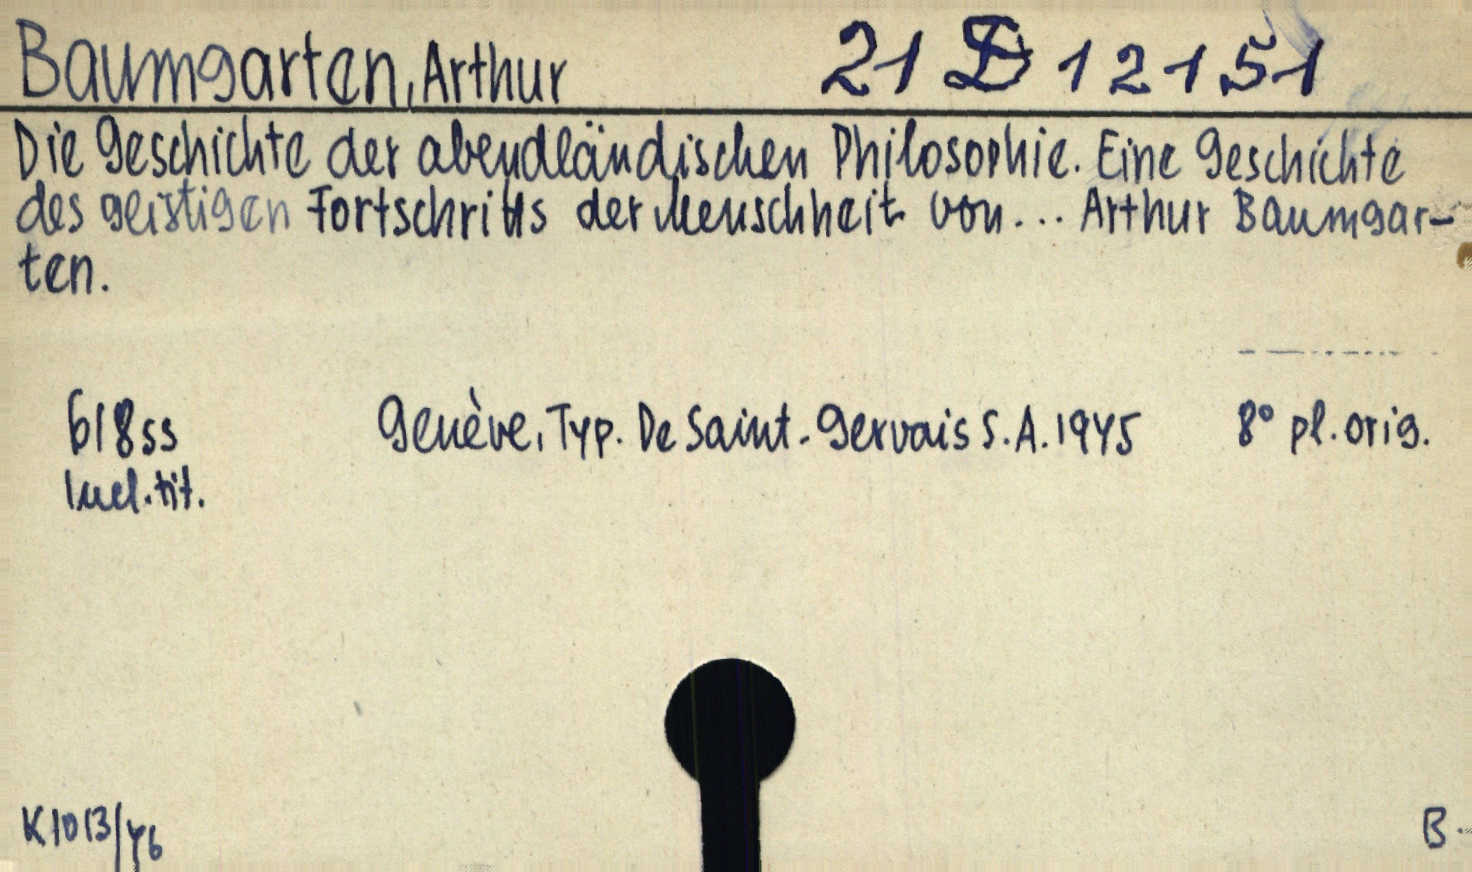 Baumgarten, Arthur 21 D 12151
Die Geschichte der abendländischen Philosophie. Eine Geschichte
des geistigen Fortschritts der Menschheit von... Arthur Baumgar-
ten.
618 ss Genève, Typ. De Saint-Gervais S.A. 1945 8° pl. orig.
Incl. tit.
K1013/46 B